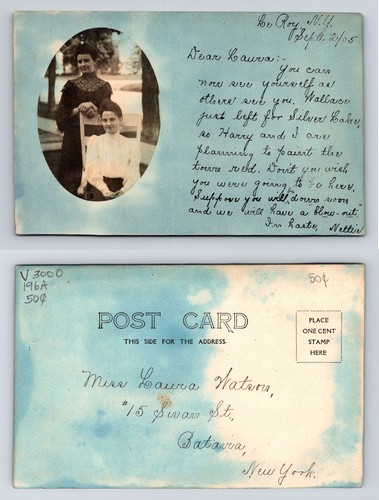 Le Roy, N.Y.
Sept. 2/05
Dear Laura:-
You can
now see yourself as
others see you. Wallace
just left for Silver Lake,
so Harry and I are
planning to paint the
town red. Don't you wish
you were going to be here.
Suppose you will "down" soon
and we will have a "blow-out"
In haste, Nettie
V3000
196A
50¢
50¢
POST CARD
THIS SIDE FOR THE ADDRESS.
PLACE
ONE CENT
STAMP
HERE
Miss Laura Watson,
#15 Swan St.,
Batavia,
New York.